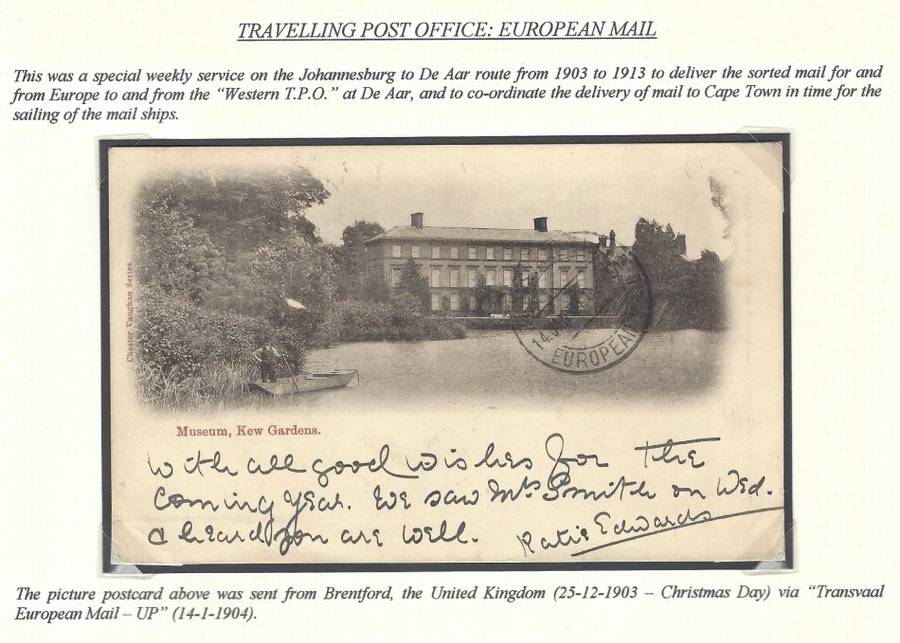 TRAVELLING POST OFFICE: EUROPEAN MAIL
This was a special weekly service on the Johannesburg to De Aar route from 1903 to 1913 to deliver the sorted mail for and
from Europe to and from the “Western T.P.O.” at De Aar, and to co-ordinate the delivery of mail to Cape Town in time for the
sailing of the mail ships.
Chester Vaughan Series
14 JAN
EUROPEAN
Museum, Kew Gardens.
With all good wishes for the
Coming Year. We saw Mrs Smith on Wed.
& heard you are well.
Katie Edwards
The picture postcard above was sent from Brentford, the United Kingdom (25-12-1903 – Christmas Day) via “Transvaal
European Mail – UP” (14-1-1904).